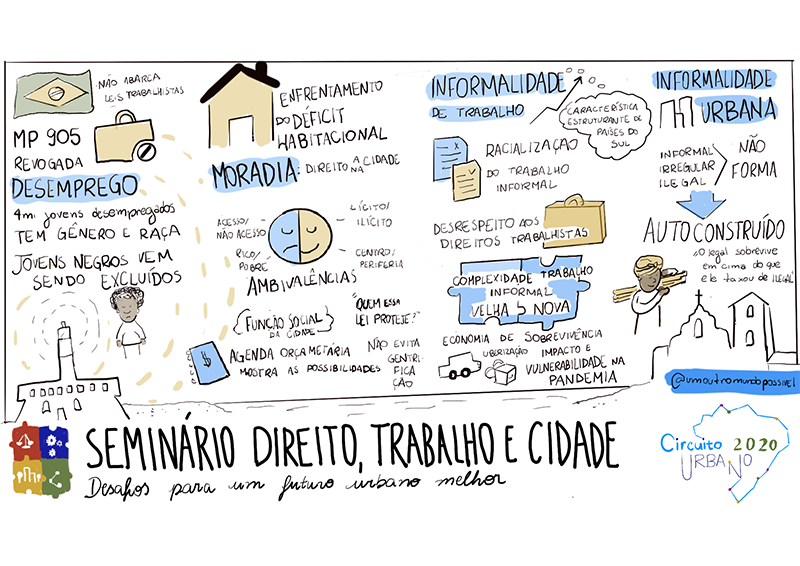 NÃO ABARCA
LEIS TRABALHISTAS
MP 905
REVOGADA
DESEMPREGO
4mi jovens desempregados
TEM GÊNERO E RAÇA
JOVENS NEGROS VEM
SENDO EXCLUÍDOS
ENFRENTAMENTO
DO DÉFICIT
HABITACIONAL
MORADIA: DIREITO A CIDADE
NA
ACESSO/
NÃO ACESSO
LÍCITO/
ILÍCITO
RICO/
POBRE
CENTRO/
PERIFERIA
AMBIVALÊNCIAS
FUNÇÃO SOCIAL
DA CIDADE
"QUEM ESSA
LEI PROTEJE?"
$
AGENDA ORÇAMETÁRIA
MOSTRA AS POSSIBILIDADES
NÃO EVITA
GENTRI-
FICA
ÇÃO
INFORMALIDADE
DE TRABALHO
CARACTERÍSTICA
ESTRUTURANTE DE
PAÍSES DO
SUL
RACIALIZAÇÃO
DO TRABALHO
INFORMAL
DESRESPEITO AOS
DIREITOS TRABALHISTAS
COMPLEXIDADE TRABALHO
INFORMAL
VELHA NOVA
ECONOMIA DE SOBREVIVÊNCIA
UBERIZAÇÃO
IMPACTO E
VULNERABILIDADE NA
PANDEMIA
INFORMALIDADE
URBANA
INFORMAL
IRREGULAR
ILEGAL
NÃO
FORMA
AUTOCONSTRUÍDO
"O legal sobrevive
em cima do que
ele taxou de ILEGAL"
@umoutromundopossivel
SEMINÁRIO DIREITO, TRABALHO E CIDADE
Desafios para um futuro urbano melhor
Circuito 2020
URBANO